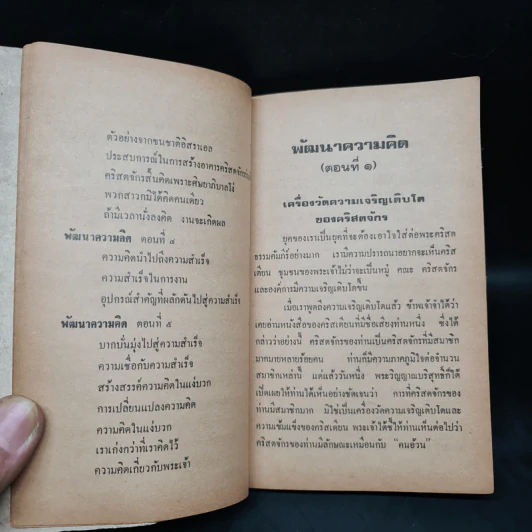 ตัวอย่างจากชนชาติอิสราเอล
ประสบการณ์ในการสร้างอาคารคริสตจักร
คริสตจักรสิ้นคิดเพราะศิษยาภิบาลโง่
พวกสาวกมิได้คิดคนเดียว
ถ้ามีเวลานั่งลงคิด งานจะเกิดผล
พัฒนาความคิด ตอนที่ ๔
ความคิดนำไปลงความสำเร็จ
ความสำเร็จในการงาน
อุปกรณ์สำคัญที่ผลักดันไปสู่ความสำเร็จ
พัฒนาความคิด ตอนที่ ๕
บากบั่นมุ่งไปสู่ความสำเร็จ
ความเชื่อกับความสำเร็จ
สร้างสรรค์ความคิดในแง่บวก
การเปลี่ยนแปลงความคิด
ความคิดในแง่บวก
เราเก่งกว่าที่เราคิดไว้
ความคิดเกี่ยวกับพระเจ้า
พัฒนาความคิด
(ตอนที่ ๑)
เครื่องวัดความเจริญเติบโต
ของคริสตจักร
ยุคของเราเป็นยุคที่จะต้องเอาใจใส่ต่อพระคริสต
ธรรมคัมภีร์อย่างมาก เรามีความปรารถนาอยากจะเห็นคริส
เตียน ชุมชนของพระเจ้าไม่ว่าจะเป็นหมู่ คณะ คริสตจักร
และองค์การมีความเจริญเติบโตขึ้น
เมื่อเราพูดถึงความเจริญเติบโตแล้ว ข้าพเจ้าจำได้ว่า
เคยอ่านหนังสือของคริสเตียนที่มีชื่อเสียงท่านหนึ่ง ซึ่งได้
กล่าวว่าอย่างนี้ คริสตจักรของท่านเป็นคริสตจักรที่มีสมาชิก
มาคนายหลายร้อยคน ท่านก็มีความภาคภูมิใจต่อจำนวน
สมาชิกเหล่านี้ แต่แล้ววันหนึ่ง พระวิญญาณบริสุทธิ์ก็ได้
เปิดเผยให้ท่านได้เห็นอย่างชัดเจนว่า การที่คริสตจักรของ
ท่านมีสมาชิกมาก มิใช่เป็นเครื่องวัดความเจริญเติบโตและ
ความเข้มแข็งของคริสเตียน พระเจ้าได้ชี้ให้ท่านเห็นต่อไปว่า
คริสตจักรของท่านมีลักษณะเหมือนกับ "คนอ้วน"